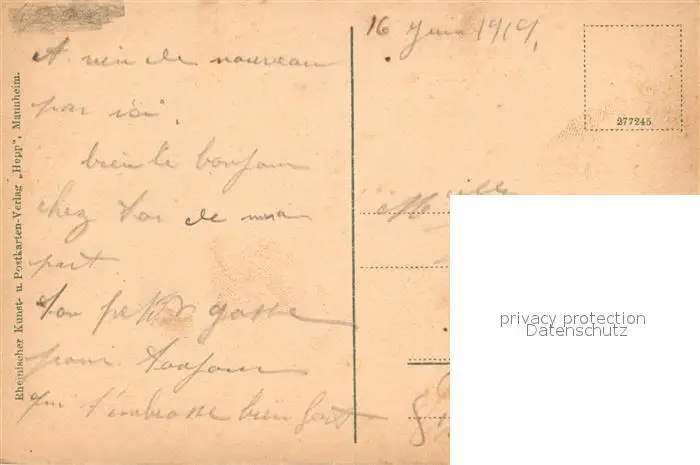 16 Juin 1919,
A rien de nouveau
par ici,
bien le bonjour
chez toi de ma
part
ton petit gosse
pour toujour
qui t'embrasse bien fort
Melle
277245
Rheinischer Kunst- u. Postkarten-Verlag „Hepp", Mannheim.
privacy protection
Datenschutz